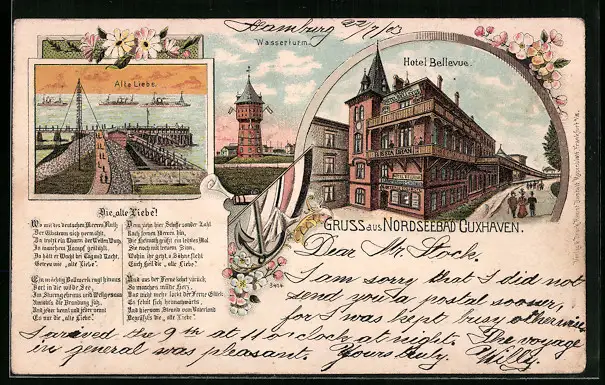 Hamburg 22/7/03
Wasserturm.
Hotel Bellevue.
Alte Liebe.
GRUSS aus NORDSEEBAD CUXHAVEN.
Die „alte Liebe“!
Wo mit des deutschen Meeres Fluth
Der Elbstrom sich vermählt,
Da trotzt ein Damm der Wellen Wuth,
In manchem Kampf gestählt.
Da hält er Wacht bei Tag und Nacht,
Getreu wie „alte Liebe“.
Ein mächtig Bollwerk ragt hinaus
Fort in die wilde See,
Im Sturmgebraus
Und jeder kennt und jeder nennt
Es nur die „alte Liebe“!
Dann zieh'n hier Schiffe sonder Zahl
Nach fernen Meeren hin,
Die Heimath grüßt ein letztes Mal
Sie noch mit treuem Sinn.
Wohin ihr geht, o Söhne fleht
Euch Heil die „alte Liebe“.
Und aus der Ferne kehrt zurück
So manches müde Herz,
Das nicht mehr lockt der Ferne Glück
Es sehnt sich heimathwärts.
Und hier vom Strand vom Vaterland
Begrüßt's die „alte Liebe“!
3424
Dear Mr. Stock.
I am sorry that I did not
send you a postal sooner,
for I was kept busy otherwise
I arrived the 9th at 11 o'clock at night. The voyage
in general was pleasant. Yours truly, Willy.